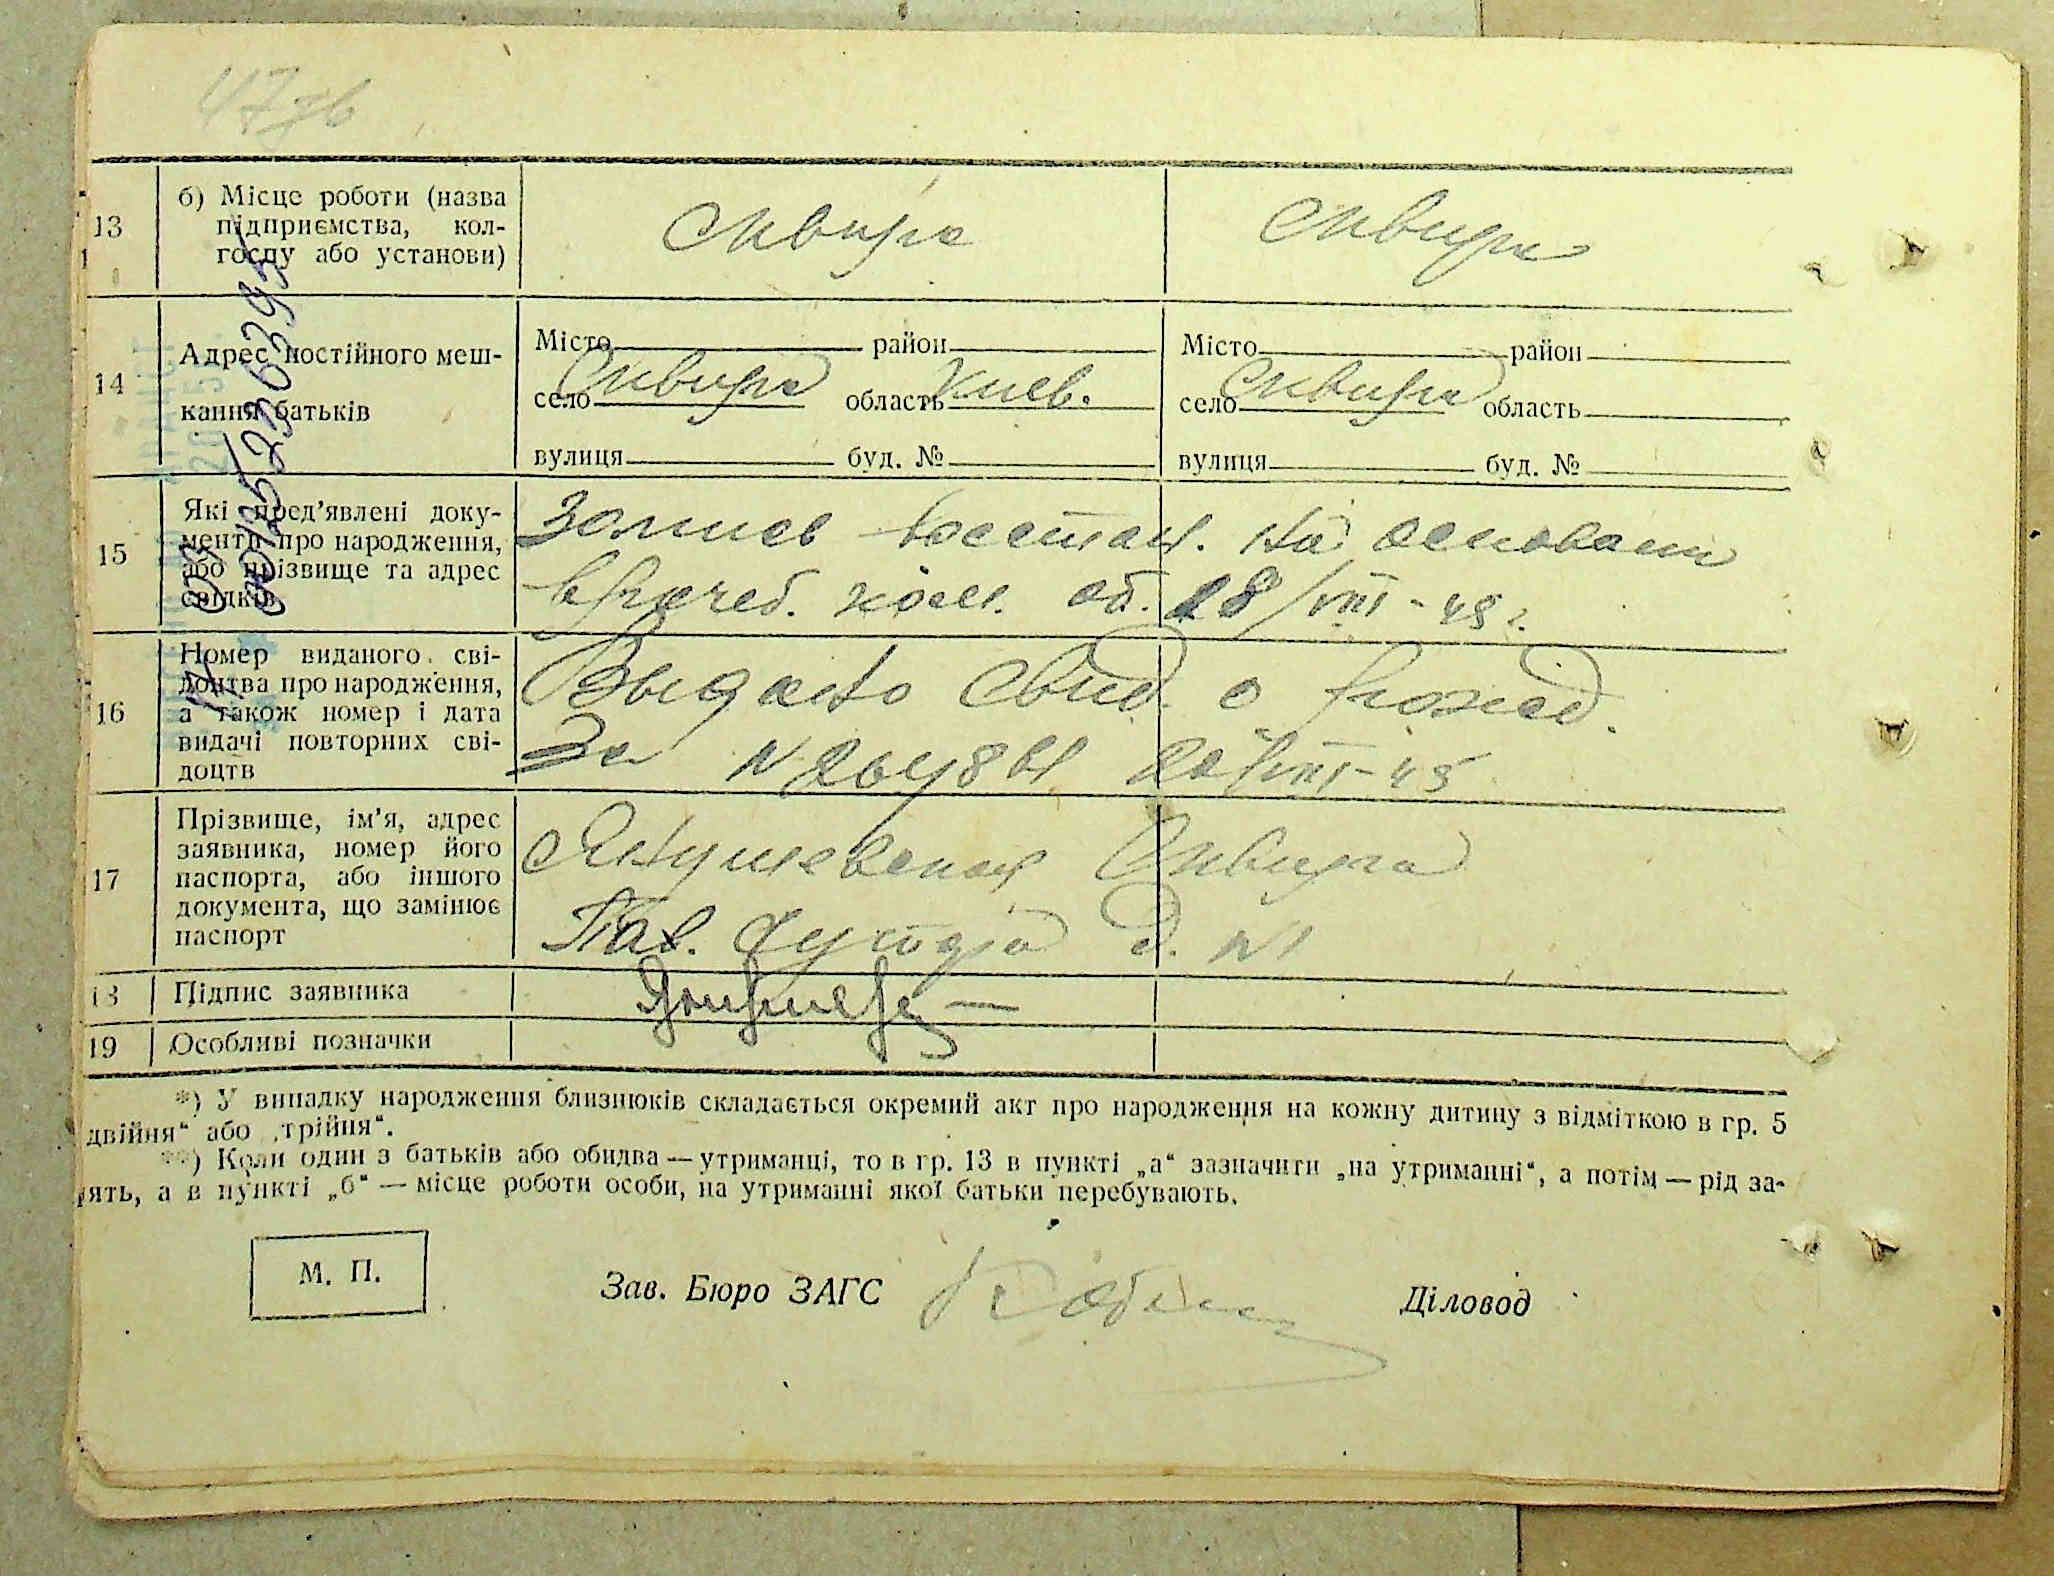 47зв
13
б) Місце роботи (назва
підприємства, кол-
госпу або установи)
Сквира
Сквира
14
Адрес постійного меш-
кання батьків
Місто район
село Сквира область Киев.
вулиця буд. №
Місто район
село Сквира область
вулиця буд. №
15
Які пред’явлені доку-
менти про народження,
або прізвище та адрес
свідків
Запись восстан. на основани
врачеб. ком. от. 28/VIII-45 г.
16
Номер виданого сві-
доцтва про народження,
а також номер і дата
видачі повторних сві-
доцтв
Выдано свид. о рожд.
За N
17
Прізвище, ім’я, адрес
заявника, номер його
паспорта, або іншого
документа, що замінює
паспорт
Янушевская Сквира
д. N1
18
Підпис заявника
19
Особливі позначки
*) У випадку народження близнюків складається окремий акт про народження на кожну дитину з відміткою в гр. 5
двійня“ або „трійня“.
**) Коли один з батьків або обидва — утриманці, то в гр. 13 в пункті „а“ зазначити „на утриманні“, а потім — рід за-
ять, а в пункті „б“ — місце роботи особи, на утриманні якої батьки перебувають.
М. П.
Зав. Бюро ЗАГС
Діловод